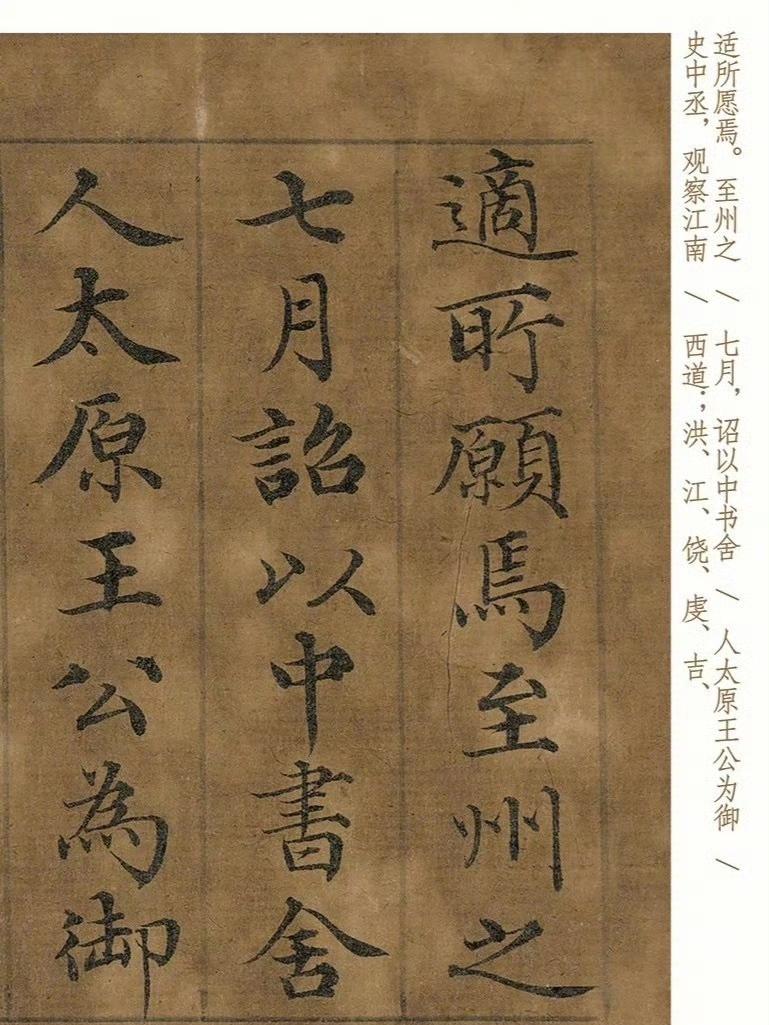 適所願焉至州之
七月詔以中書舍
人太原王公為御
适所愿焉。至州之 \ 七月,诏以中书舍 \ 人太原王公为御 \
史中丞,观察江南 \ 西道;洪、江、饶、虔、吉、